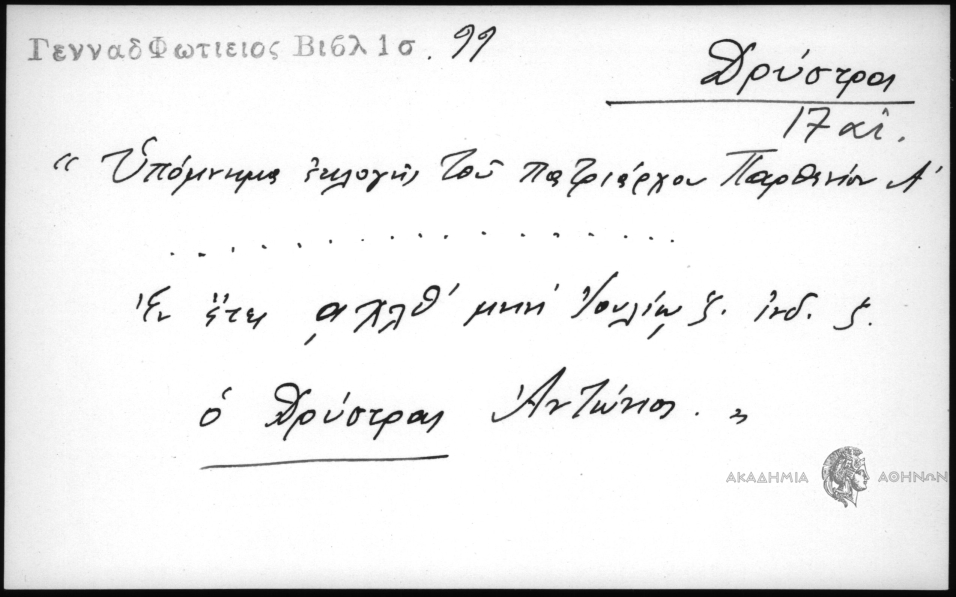 Γενναδ Φωτιειος Βιβλ 1 σ. 99
Δρύστρας
17 αἰ.
“ Ὑπόμνημα ἐκλογῆς τοῦ πατριάρχου Παρθενίου Α'
. . . . . . . . . . . . . . . . . .
Ἐν ἔτει ͵αχλθ' μηνὶ Ἰουλίῳ ζ. ἰνδ. ζ.
ὁ Δρύστρας Ἀντώνιος. „
ΑΚΑΔΗΜΙΑ ΑΘΗΝΩΝ